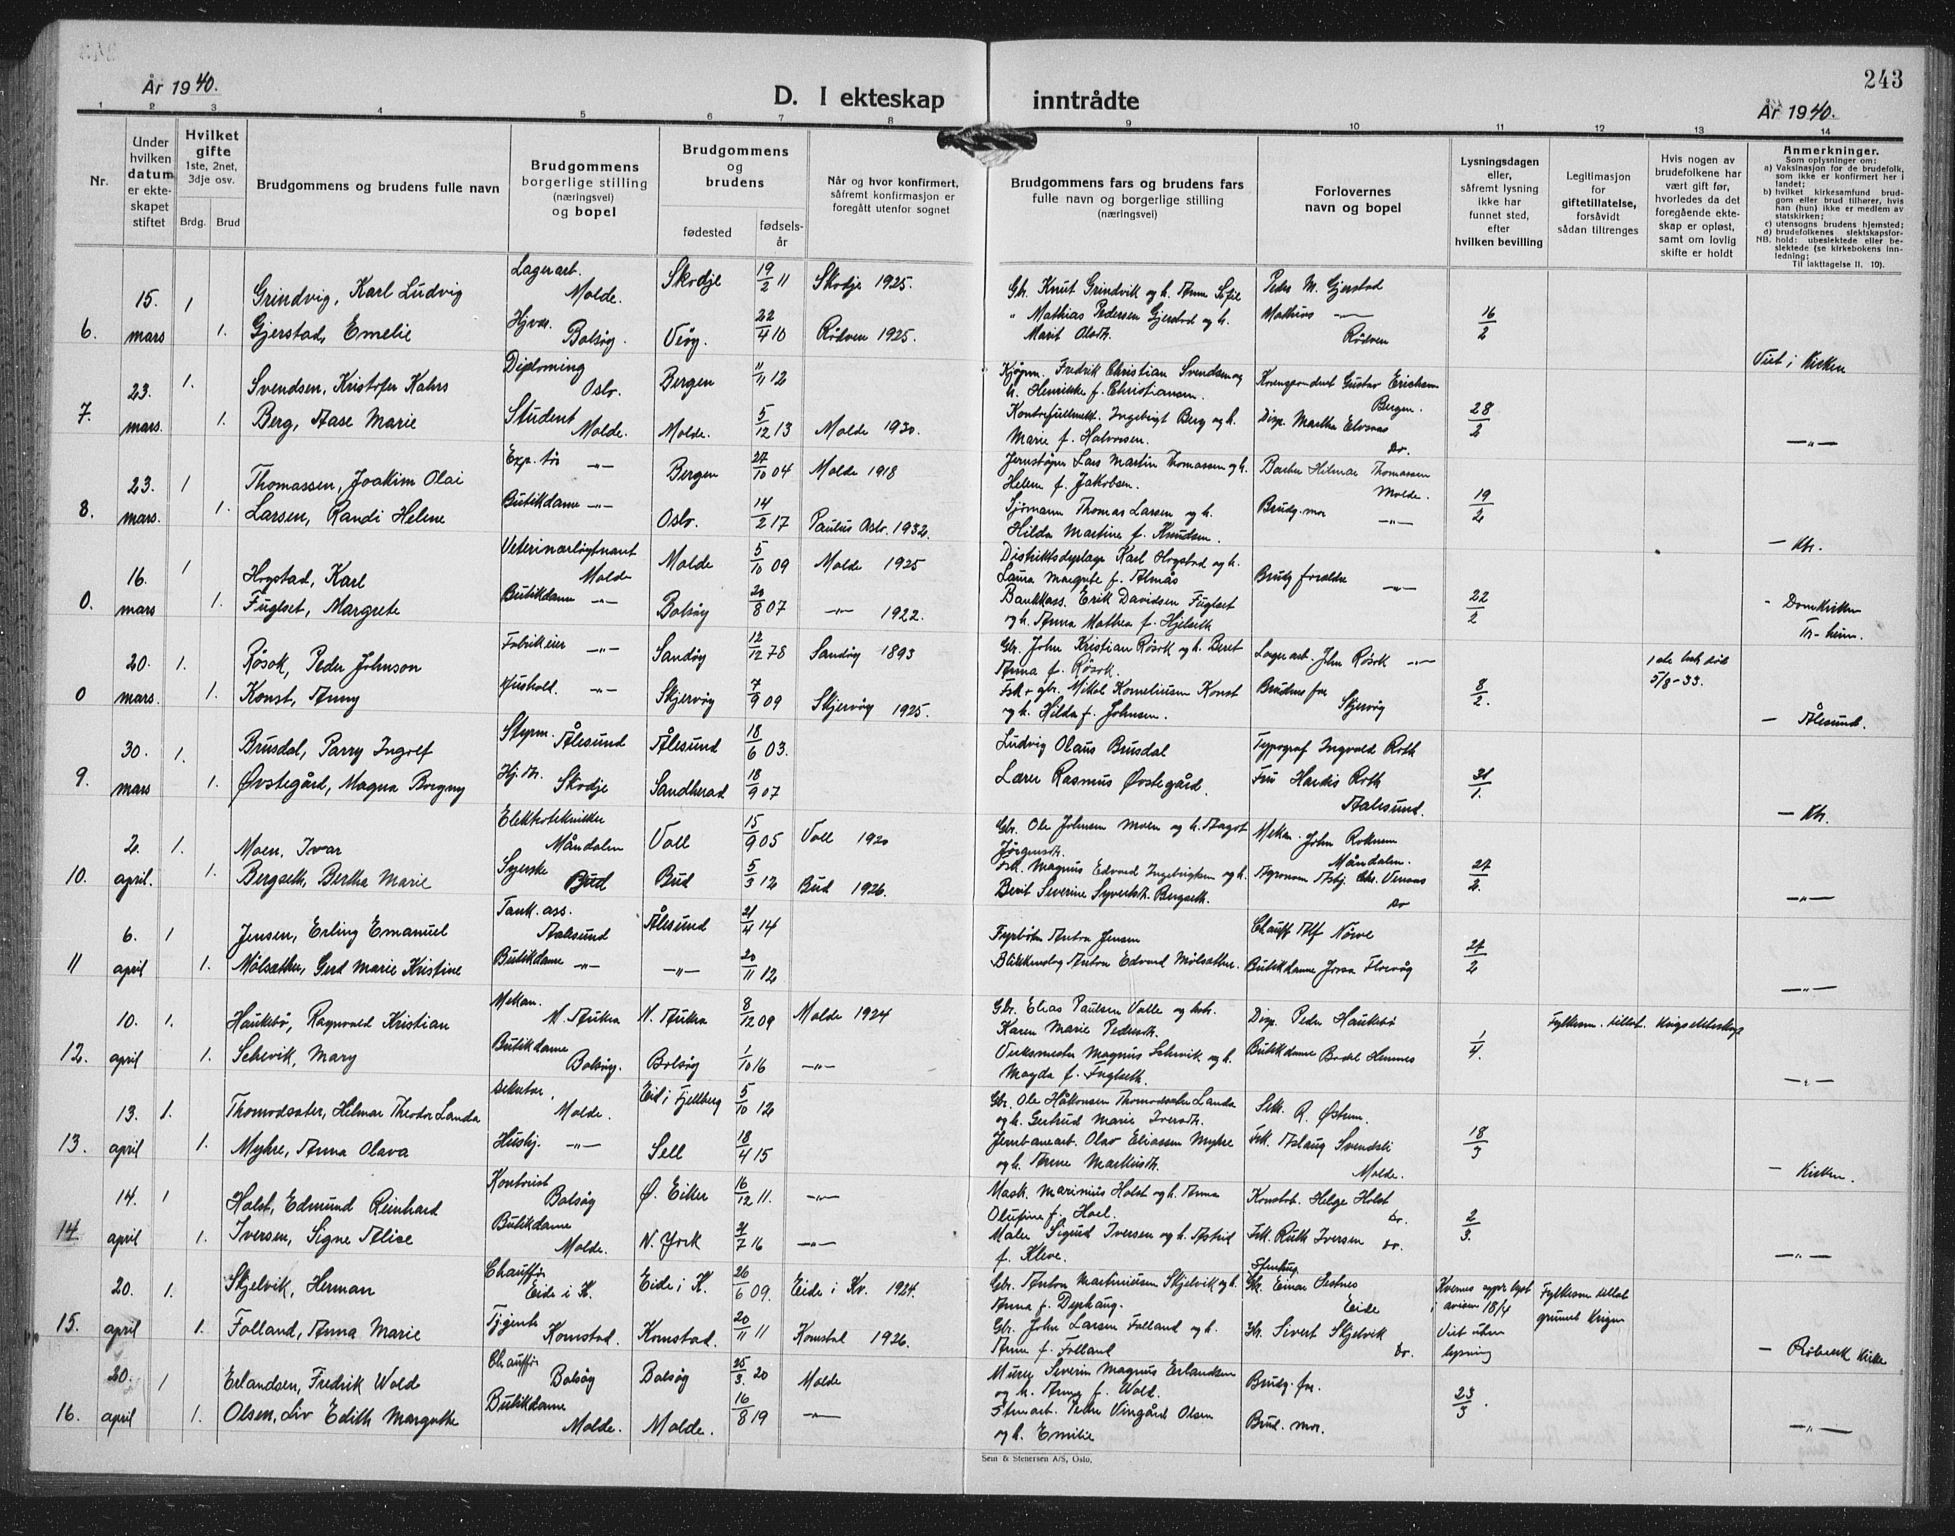 243
År 1940.
D. I ekteskap inntrådte
År 1940.
1 2 3 4 5 6 7 8 9 10 11 12 13 14
Nr.
Under hvilken datum er ekteskapet stiftet
Hvilket gifte
1ste, 2net, 3dje osv.
Brdg. Brud
Brudgommens og brudens fulle navn
Brudgommens borgerlige stilling (næringsvei) og bopel
Brudgommens og brudens
fødested
fødselsår
Når og hvor konfirmert, såfremt konfirmasjon er foregått utenfor sognet
Brudgommens fars og brudens fars fulle navn og borgerlige stilling (næringsvei)
Forlovernes navn og bopel
Lysningsdagen eller, såfremt lysning ikke har funnet sted, efter hvilken bevilling
Legitimasjon for giftetillatelse, forsåvidt sådan tiltrenges
Hvis nogen av brudefolkene har vært gift før, hvorledes da det foregående ekteskap er opløst, samt om lovlig skifte er holdt
Anmerkninger.
Som oplysninger om:
a) Vaksinasjon for de brudefolk, som ikke er konfirmert her i landet;
b) hvilket kirkesamfund brudgom eller brud tilhører, hvis han (hun) ikke er medlem av statskirken;
c) utensogns brudens hjemsted;
d) brudefolkenes slektskapsforhold: ubeslektede eller beslektede (se kirkebokens innledning;
NB. Til iakttagelse II. 10).
15. 1 Grindvig, Karl Ludvig Lagerarb. Molde. Skodje 19/2 11 Skodje 1925. Gbr. Knut Grindvik og h. Anne Sofie Peder M. Gjerstad
6. mars 1. Gjerstad, Emelie Bolsøy. Veøy. 22/4 10 Rødven 1925. " Mathias Pedersen Gjerstad og h. Marit Olsdt. Mathias —"— Rødven 16/2
Viet i Kirken
23. 1. Svendsen, Kristofer Kahrs Diploming Oslo. Bergen 11/11 12 Kjøpm. Fredrik Christian Svendsen og h. Henrikke f. Christiansen. Korrespondent Gustav Erichsen Bergen.
7. mars. 1. Berg, Aase Marie Student Molde. Molde. 5/12 13 Molde 1930. Ingebrigt Berg og h. Marie f. Halvorsen. Disp. Martha Elvenes Do. 28/2 —"—
23. 1 Thomassen, Joakim Olai —"— Bergen 27/10 04 Molde 1918 Lars Martin Thomassen og h. Helene f. Jakobsen. Hilmar Thomassen Molde.
8. mars. 1. Larsen, Randi Helene Butikdame —"— Oslo. 14/2 17 Paulus Oslo. 1932. Sjømann Thomas Larsen og h. Hilda Martine f. Knudsen. Brudg. mor —"— 19/2
16. 1 Hogstad, Karl Veterinærløytnant Molde Molde 5/10 09 Molde 1925 Karl Hogstad og h. Laura Margrete f. Almås Brudg. foreldre —"—
0. mars 1. Fuglset, Margrete Butikdame —"— Bolsøy 20/8 07 —"— 1922. Bankkass. Erik Davidsen Fuglset og h. Anna Mathea f. Hjelseth 22/2 - Domkirken Tr-heim.
20. 1. Røsok, Peder Johnson Fabrikeier —"— Sandøy 12/12 78 Sandøy 1893 Gbr. John Kristian Røsok og h. Beret Anna f. Røsok. Lagerarb. John Røsok —"— 5/8-33.
0 mars. 1. Konst, Anny Hushold. —"— Skjervøy 7/9 09 Skjervøy 1925. Mikal Korneliusen Konst og h. Hilda f. Johnsen. Brudens far Skjervøy 8/2. - Ålesund.
30. 1. Brusdal, Parry Ingolf Styrm. Ålesund Ålesund 18/6 03. Ludvig Olaus Brusdal Typograf Ingvald Roth
9. mars 1. Øvstegård, Magna Borgny Skodje Sandherad 18/9 07 Lærer Rasmus Øvstegård. Fru Hardis Roth Aalesund. 31/1.
2. 1. Moen, Ivar Elektrotekniker Måndalen Voll 15/9 05 Voll 1920 Gbr. Ole Johnsen Moen og h. Aagot Jørgensdt. John Måndalen.
10. april. 1. Bergseth, Bertha Marie Syerske Bud Bud 5/3 12 Bud 1926. Magnus Edvard Ingebrigtsen og h. Berit Severine Syvertsdt. Bergseth. Agronom Do 27/2. —"—
6. 1 Jensen, Erling Emanuel Tank. ass. Aalesund Ålesund 21/4 14 Fyrbøter Anton Jensen Chauff Alf Nörve
11 april 1. Mølsæther, Gerd Marie Kristine Butikdame —"— —"— 20/11 12 Anton Edvard Mølsæther. Butikdame 27/2 —"—
10. 1. Haukebø, Ragnvald Kristian Mekan. N. Aukra N. Aukra 8/12 09 Molde 1924 Gbr. Elias Paulsen Valle og Karen Marie Pedersdt. Disp. Peder Haukebø Fylkesm. tillat. Krigsekteskap
12. april 1. Mary Butikdame Bolsøy. Bolsøy 1/10 16 —"— Verksmester Magnus og h. Magda f. Fuglseth. Butikdame Bodil Hennes 1/4. —"—
13. 1. Thomodsæter, Helmar Theodor Landa Molde. Eid i Fjellberg 5/10 12 Gbr. Ole Håkonsen Thomodsæter Landa og h. Gertrud Marie Iversdt. Sek. R. Østrem.
13. april 1. Myhre, Anna Olava Hushj. —"— Sell 18/4 15 Jernbanearb. Olav Eliassen Myhre og h. Anne Markusdt. Frk. Aslaug Svendsli Molde. 18/3 - Kirken.
14. 1 Holst, Edmund Reinhard Kontorist Bolsøy Ø. Eiker 16/12 11. —"— Mask. Marinius Holst og h. Anna Olufine f. Hoel. Kontorb. Helge Holst Do.
14 april 1. Iversen, Signe Alise Butikdame Molde. N. York 3/7 16 —"— Maler Sigurd Iversen og h. Astrid f. Kleve. Frk. Ruth Iversen Do. 2/3. —"—
20. 1. Skjelvik, Herman Chauffør Eide i K. Eide i K. 26/6 09. Eide i Kv. 1924. Gbr. Anton Martinussen Skjelvik og h. Anna f. Dyrhaug. Einar Eide i avisen 18/4 Fylkesm tillat grunnet Krigen
15. april 1. Folland, Anna Marie Komstad. Komstad. 20/11 11 Komstad 1926. Gbr. John Larsen Folland og h. Anne f. Folland Sivert Skjelvik Do. Viet uten lysning - Røbekk Kirke
20. 1 Erlandsen, Fredrik Wold Chauffør Bolsøy Bolsøy 25/3. 20 Molde Murer Severin Magnus Erlandsen og h. Anna f. Wold. Brudg. far.
16. april 1. Olsen, Liv Edith Margrethe Butikdame Molde. Molde. 16/8 19 —"— Peder Vingård Olsen og h. Emilie Brud. mor. 23/3. —"—
Sem & Stenersen A/S, Oslo.